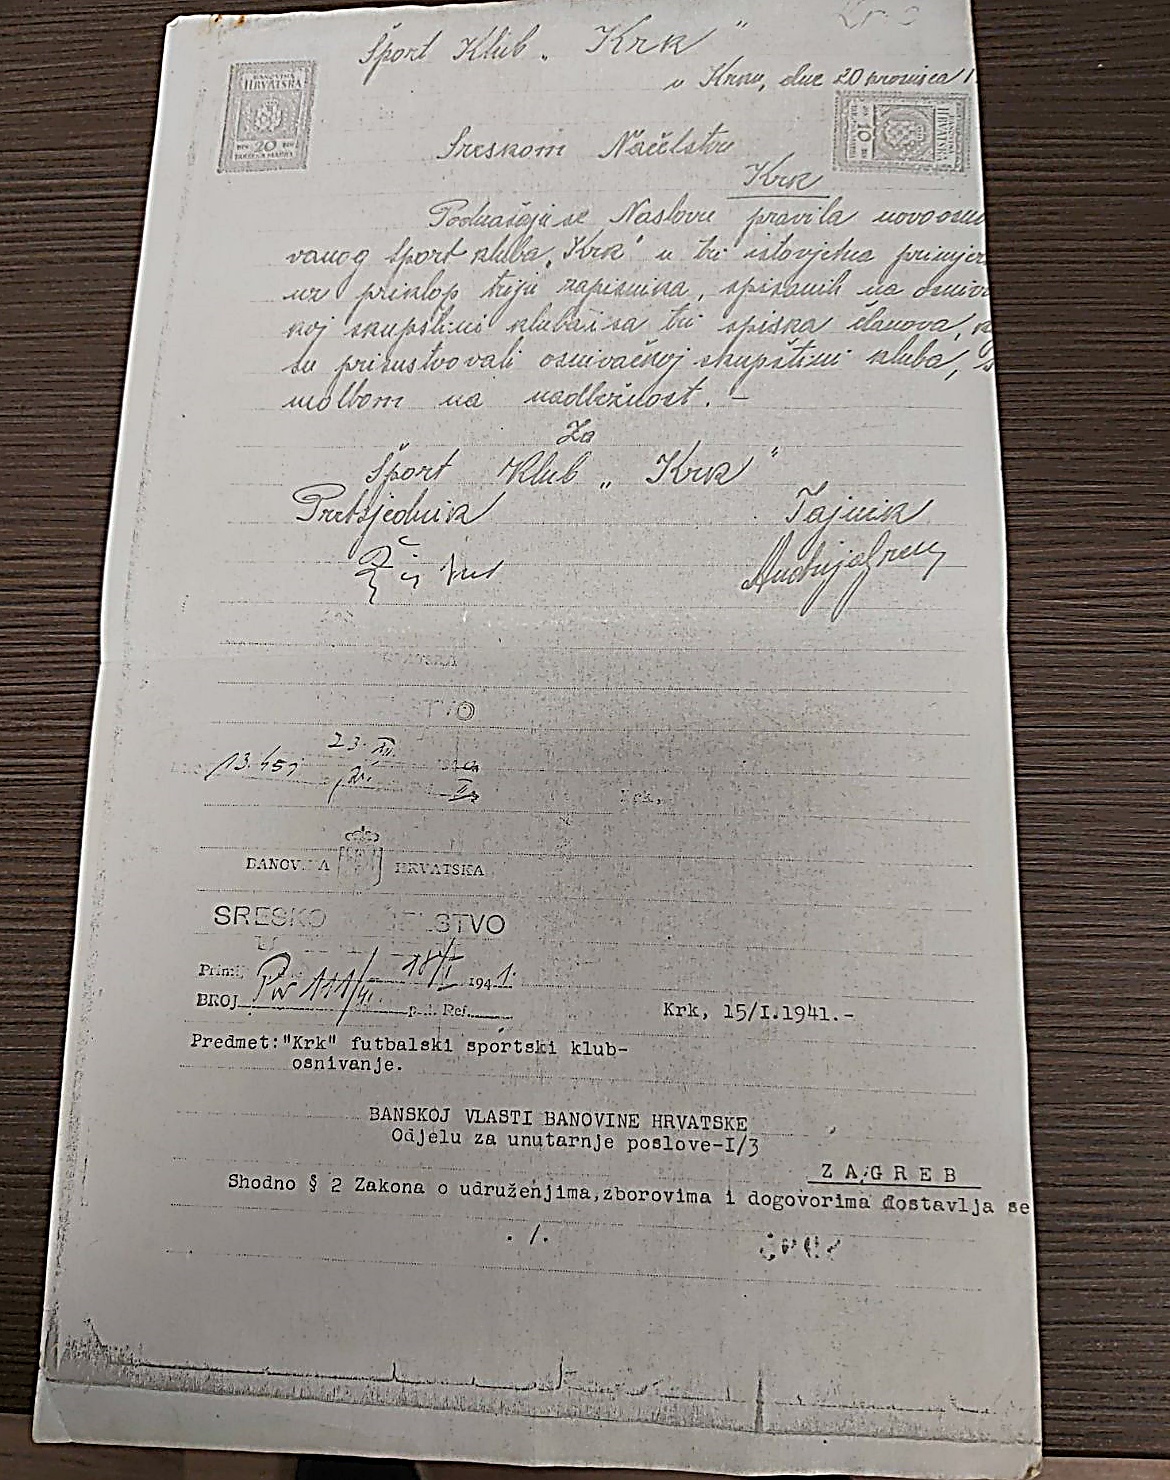 Šport Klub „Krk"
u Krku, dne 20 prosinca 1
BANOVINA
HRVATSKA
DIN 20 DIN
HRVATSKA
10
Sreskom Načelstvu
Krk
Podnašaju se Naslovu pravila novoosni
vanog šport kluba „Krk" u tri istovjetna primjer
uz priklop triju zapisnika, spisanih na osniv
koj skupštini kluba i sa tri spiska članova, k
su prisustvovali osnivačkoj skupštini kluba, s
molbom na nadležnost. –
Za
Šport Klub „Krk"
Predsjednik Tajnik
TVO
23. XII.
13.451
Krk,
BANOV A HRVATSKA
SRESKO ELSTVO
Primlj 18/I 1941.
BROJ Pov 111/41. p. i. Ref.
Krk, 15/I.1941.-
Predmet:"Krk" futbalski sportski klub-
osnivanje.
BANSKOJ VLASTI BANOVINE HRVATSKE
Odjelu za unutarnje poslove-I/3
ZAGREB
Shodno § 2 Zakona o udruženjima,zborovima i dogovorima dostavlja se
. /.